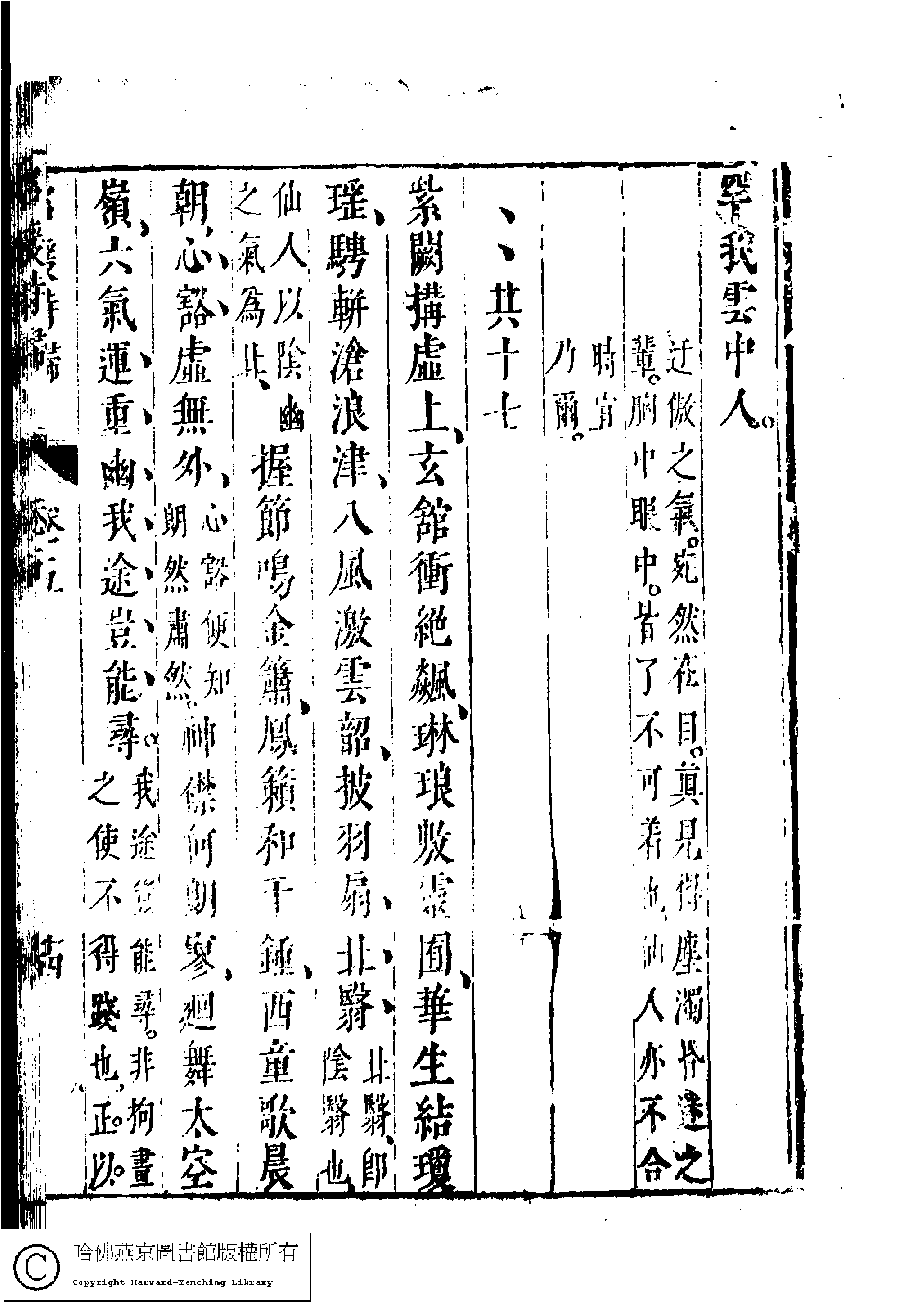 罕我雲中人。
迂傲之氣。宛然在目。真見得塵濁答達之
輩。胸中眼中。皆了不可着也仙人亦不合
時宜
乃爾。
其十七
紫闕搆虛上、玄館衝絕飆、琳琅敷靈囿、華生結瓊
瑶、騁軿滄浪津、八風激雲韶、披羽扇北翳
北翳、即
陰翳也
仙人以陰幽
之氣為北、
握節鳴金簫、鳳籟和千鍾、西童歌晨
朝、心豁虛無外、
心豁便知
朗然肅然
神襟何朗寥、廻舞太空
嶺、六氣運重幽我途豈能尋。
我途豈能尋。非拘畫
之使不得踐也。正。以。
卷二
哈佛燕京圖書館版權所有
Copyright Harvard-Yenching Library